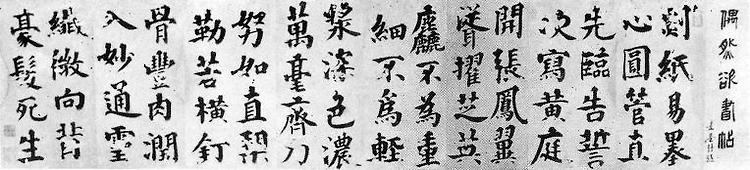 偶然欲書帖
剸紙易墨
心圓管直
先臨告誓
次寫黃庭
開張鳳翼
聳擢芝英
麤不為重
細不爲輕
漿深色濃
萬毫齊力
努如直槊
勒若橫釘
骨豐肉潤
入妙通靈
纖微向背
毫髮死生